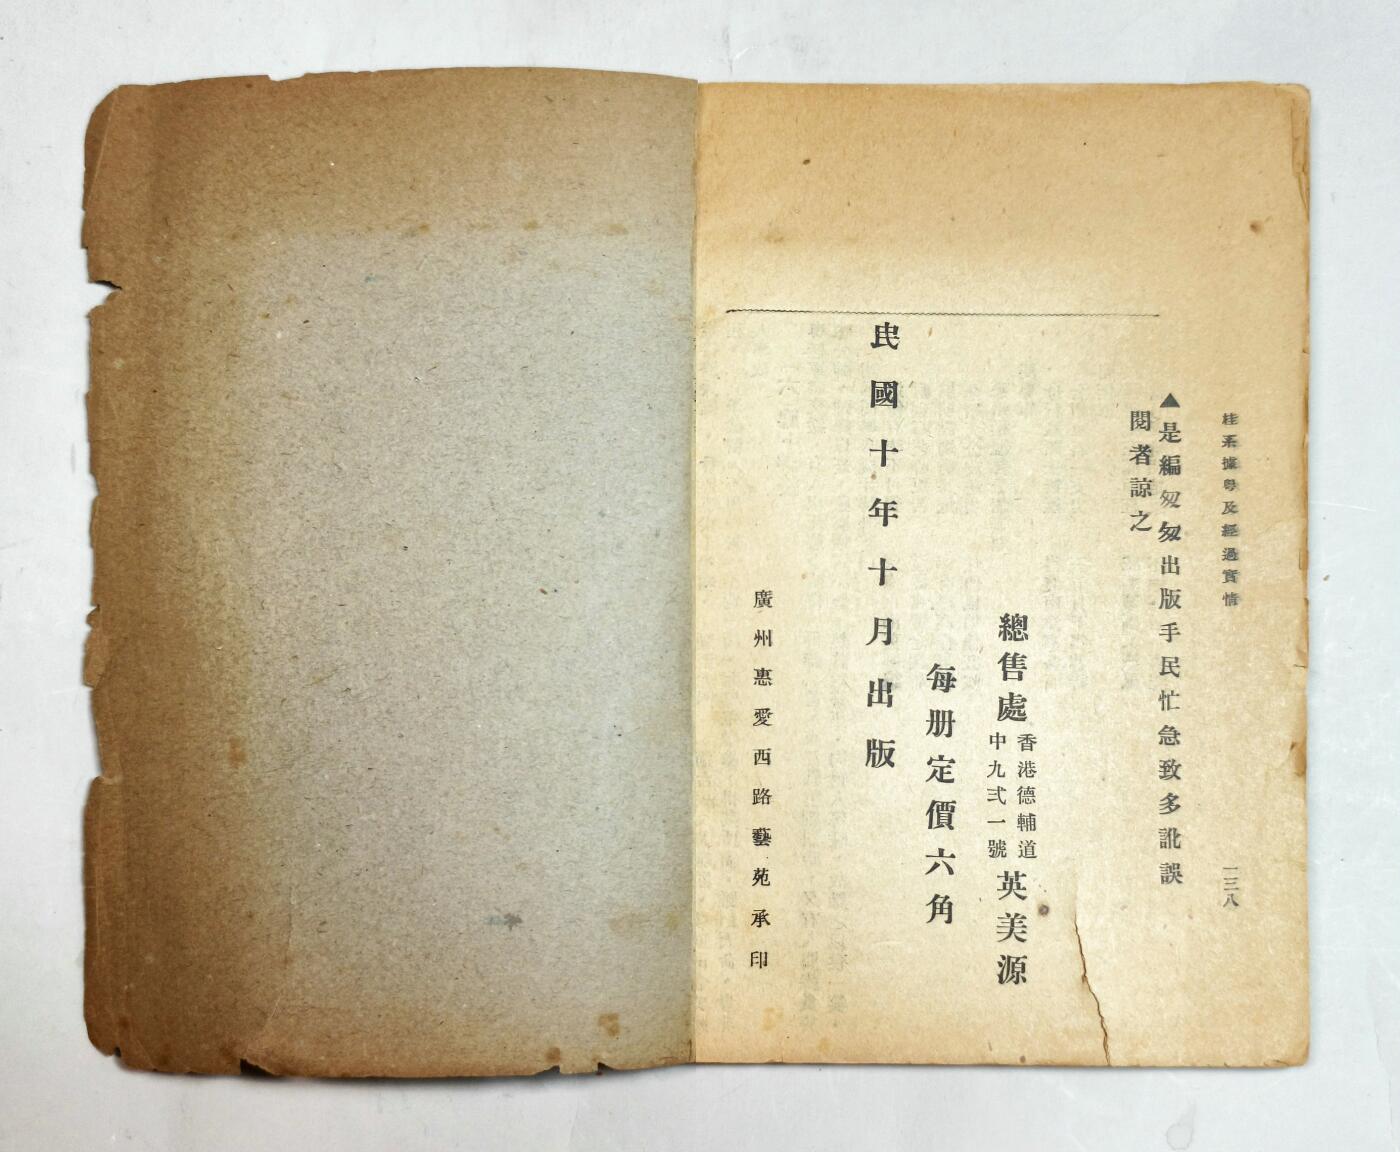 桂系據粵及經過實情
一三八
▲是編匆匆出版手民忙急致多訛誤
閱者諒之
總售處 香港德輔道
中九弍一號 英美源
每册定價六角
民國十年十月出版
廣州惠愛西路藝苑承印